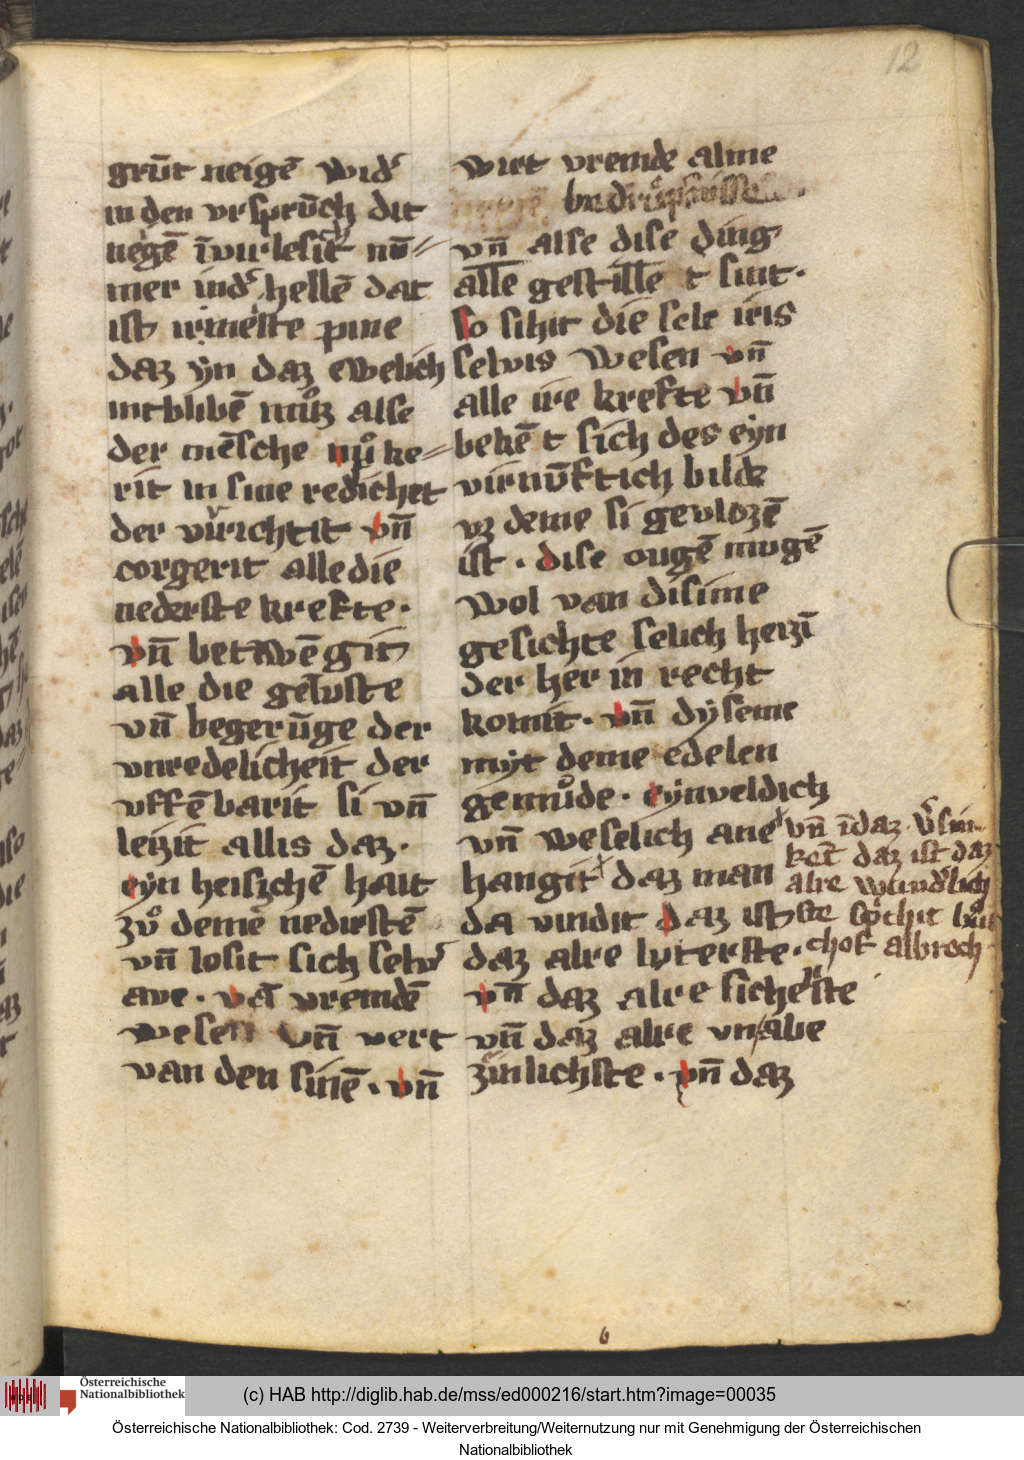 12
grūt neigē wid᷑
in den vrsprūch dit
negē īvurlesit nū=
mer ind᷑ hellē dat
ist ir meiste pine
daz yn daz ewelich
intblibē můz alse
der mēsche nů ke=
rit in sine redichet
der vůrichtit vn̄
corgerit alle die
nederste krefte·
vn̄ betwēgit
alle die gelvste
vn̄ begerūge der
vnredelicheit der
vffēbarit si vn̄
leizit allis daz·
eyn heiszchē halt
zů deme nedirstē
vn̄ losit sich selv᷑
ave· vā vremdē
wesen vn̄ vert
van den sinē· vn̄
wirt vremde alme
vn̄ alse dise ding
alle gestille t sint·
so sihit die sele iris
selvis wesen vn̄
alle ire krefte vn̄
bekē t sich des eyn
virnūftich bilde
vz deme si gevlozē
ist· dise ougē mugē
wol van disime
gesichte selich heizī
der her in recht
komit· vn̄ dyseme
myt deme edelen
gemůde· eynveldich
vn̄ weselich ane
hangit daz man
da vindit daz ist
daz alre luterste·
vn̄ daz alre sicherste
vn̄ daz alre vnabe
zinlichste· vn̄ daz
vn̄ īdaz v᷑sin
ket daz ist daz
alre wund᷑lich
ste spͥchit bi
chof albrech
6
Österreichische
Nationalbibliothek
(c) HAB http://diglib.hab.de/mss/ed000216/start.htm?image=00035
Österreichische Nationalbibliothek: Cod. 2739 - Weiterverbreitung/Weiternutzung nur mit Genehmigung der Österreichischen
Nationalbibliothek